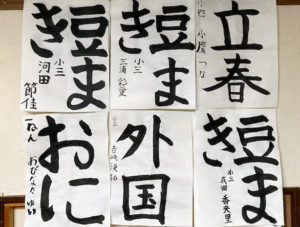 立春
小四 小鷹 つな
豆まき
小三
三浦 彩愛
豆まき
小三
河田 節佳
豆まき
小二
成田
外国
小二
おに
一ねん おびなた ゆい